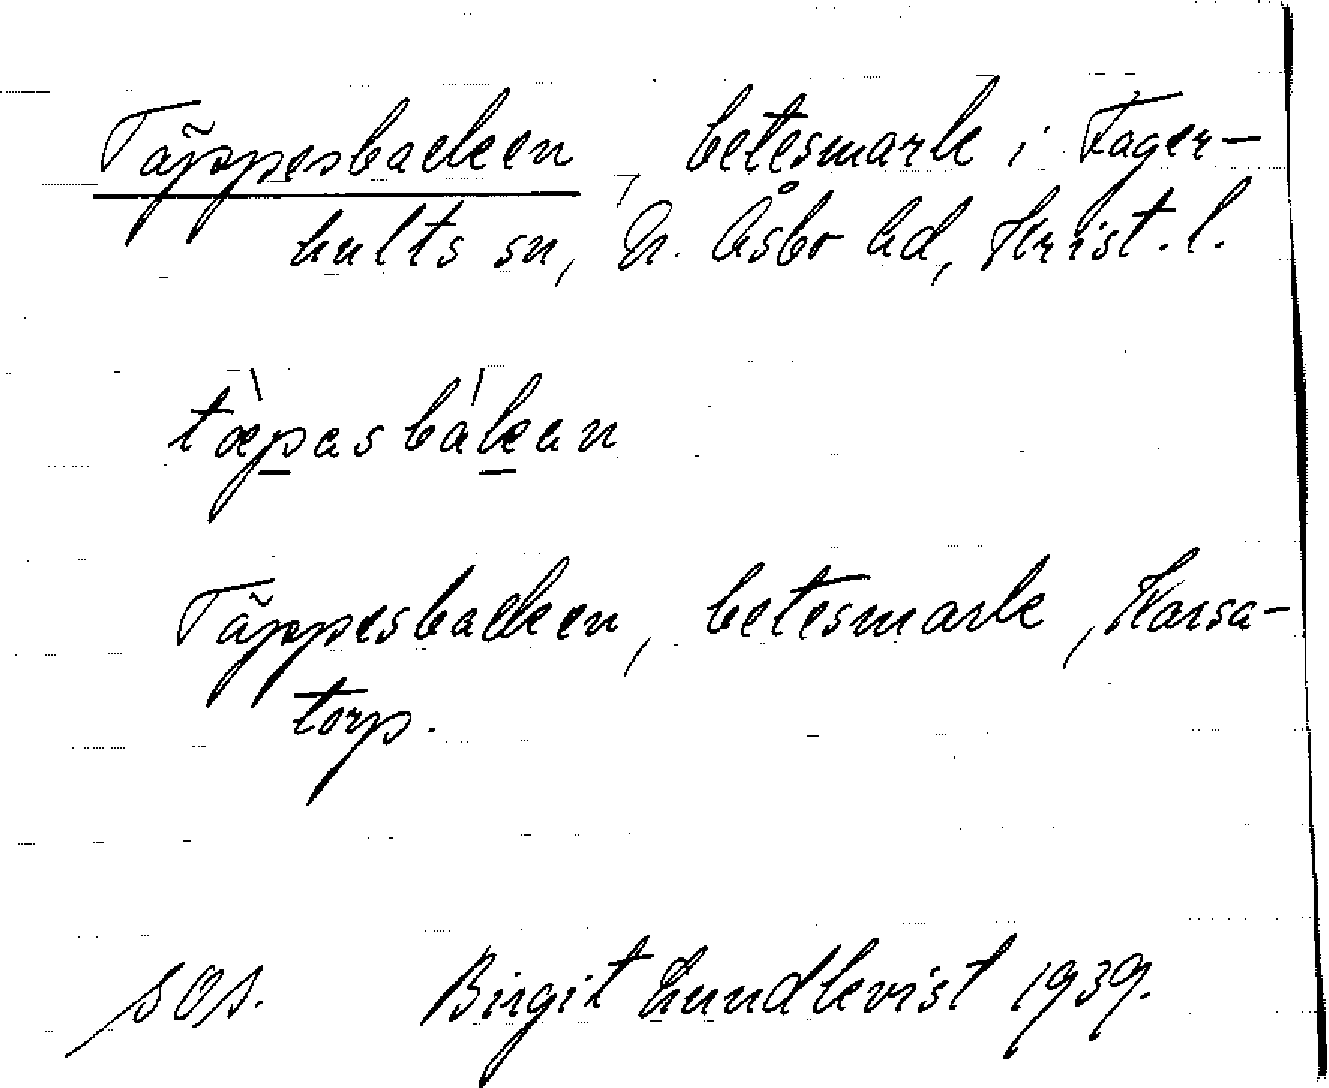 Täppesbacken, betesmark i Fager-
hults sn, N. Åsbo hd, Krist. l.
tæ̀pasbákan
Täppesbacken, betesmark, Karsa-
torp.
sos. Birgit Lundkvist 1939.